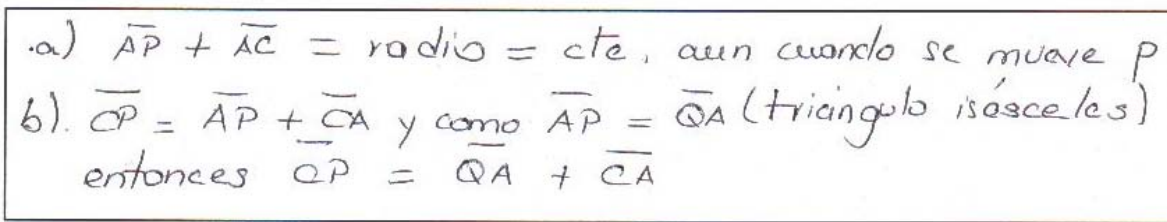 .a) A̅P̅ + A̅C̅ = radio = cte, aun cuando se mueve P
b). C̅P̅ = A̅P̅ + C̅A̅ y como A̅P̅ = Q̅A̅ (triángulo isósceles)
entonces C̅P̅ = Q̅A̅ + C̅A̅